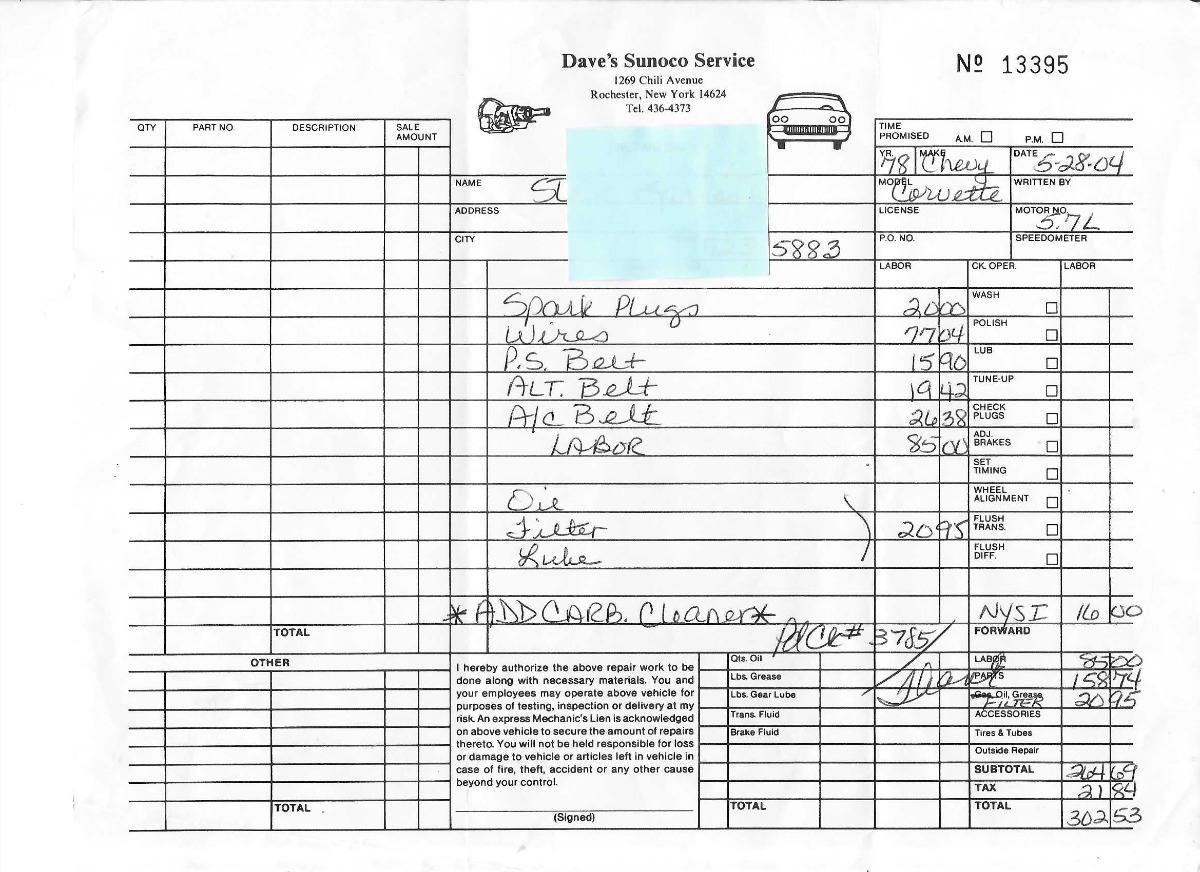 Dave's Sunoco Service
1269 Chili Avenue
Rochester, New York 14624
Tel. 436-4373
Nº 13395
QTY PART NO. DESCRIPTION SALE AMOUNT
TIME PROMISED A.M. P.M.
YR. 78 MAKE Chevy DATE 5-28-04
NAME ST
MODEL Corvette WRITTEN BY
ADDRESS
LICENSE MOTOR NO. 5.7L
CITY 5883
P.O. NO. SPEEDOMETER
LABOR CK. OPER. LABOR
Spark Plugs 20 00 WASH
Wires 77 04 POLISH
P.S. Belt 15 90 LUB
ALT. Belt 19 42 TUNE-UP
A/C Belt 26 38 CHECK PLUGS
LABOR 85 00 ADJ. BRAKES
SET TIMING
Oil WHEEL ALIGNMENT
Filter 20 95 FLUSH TRANS.
Lube FLUSH DIFF.
*ADD CARB. Cleaner* NYSI 16 00
TOTAL Pd Ck# 3785 FORWARD
OTHER
I hereby authorize the above repair work to be
done along with necessary materials. You and
your employees may operate above vehicle for
purposes of testing, inspection or delivery at my
risk. An express Mechanic's Lien is acknowledged
on above vehicle to secure the amount of repairs
thereto. You will not be held responsible for loss
or damage to vehicle or articles left in vehicle in
case of fire, theft, accident or any other cause
beyond your control.
(Signed)
TOTAL
Qts. Oil
Lbs. Grease
Lbs. Gear Lube
Trans. Fluid
Brake Fluid
TOTAL
LABOR 85 00
PARTS 158 74
Gas, Oil, Grease FILTER 20 95
ACCESSORIES
Tires & Tubes
Outside Repair
SUBTOTAL 264 69
TAX 21 84
TOTAL 302 53